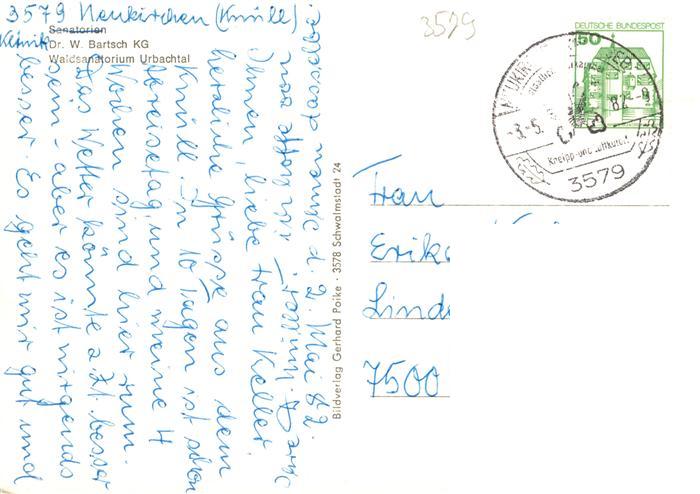 3579 Neukirchen (Knüll)
Sanatorien
Klinik Dr. W. Bartsch KG
Waldsanatorium Urbachtal
d. 2. Mai 82.
Ihnen, liebe Frau Keller
herzliche Grüsse aus dem
Knüll. In 10 Tagen ist schon
Abreisetag, und meine 4
Wochen sind hier rum.
Das Wetter könnte z. Zt. besser
sein - aber es ist nirgends
besser. Es geht mir gut und
Ihnen dasselbe
Bildverlag Gerhard Poike · 3578 Schwalmstadt 24
3579
DEUTSCHE BUNDESPOST
50
-3.-5.
82-9
Kneipp- und Luftkurort
3579
Frau
Erika
Lind
7500